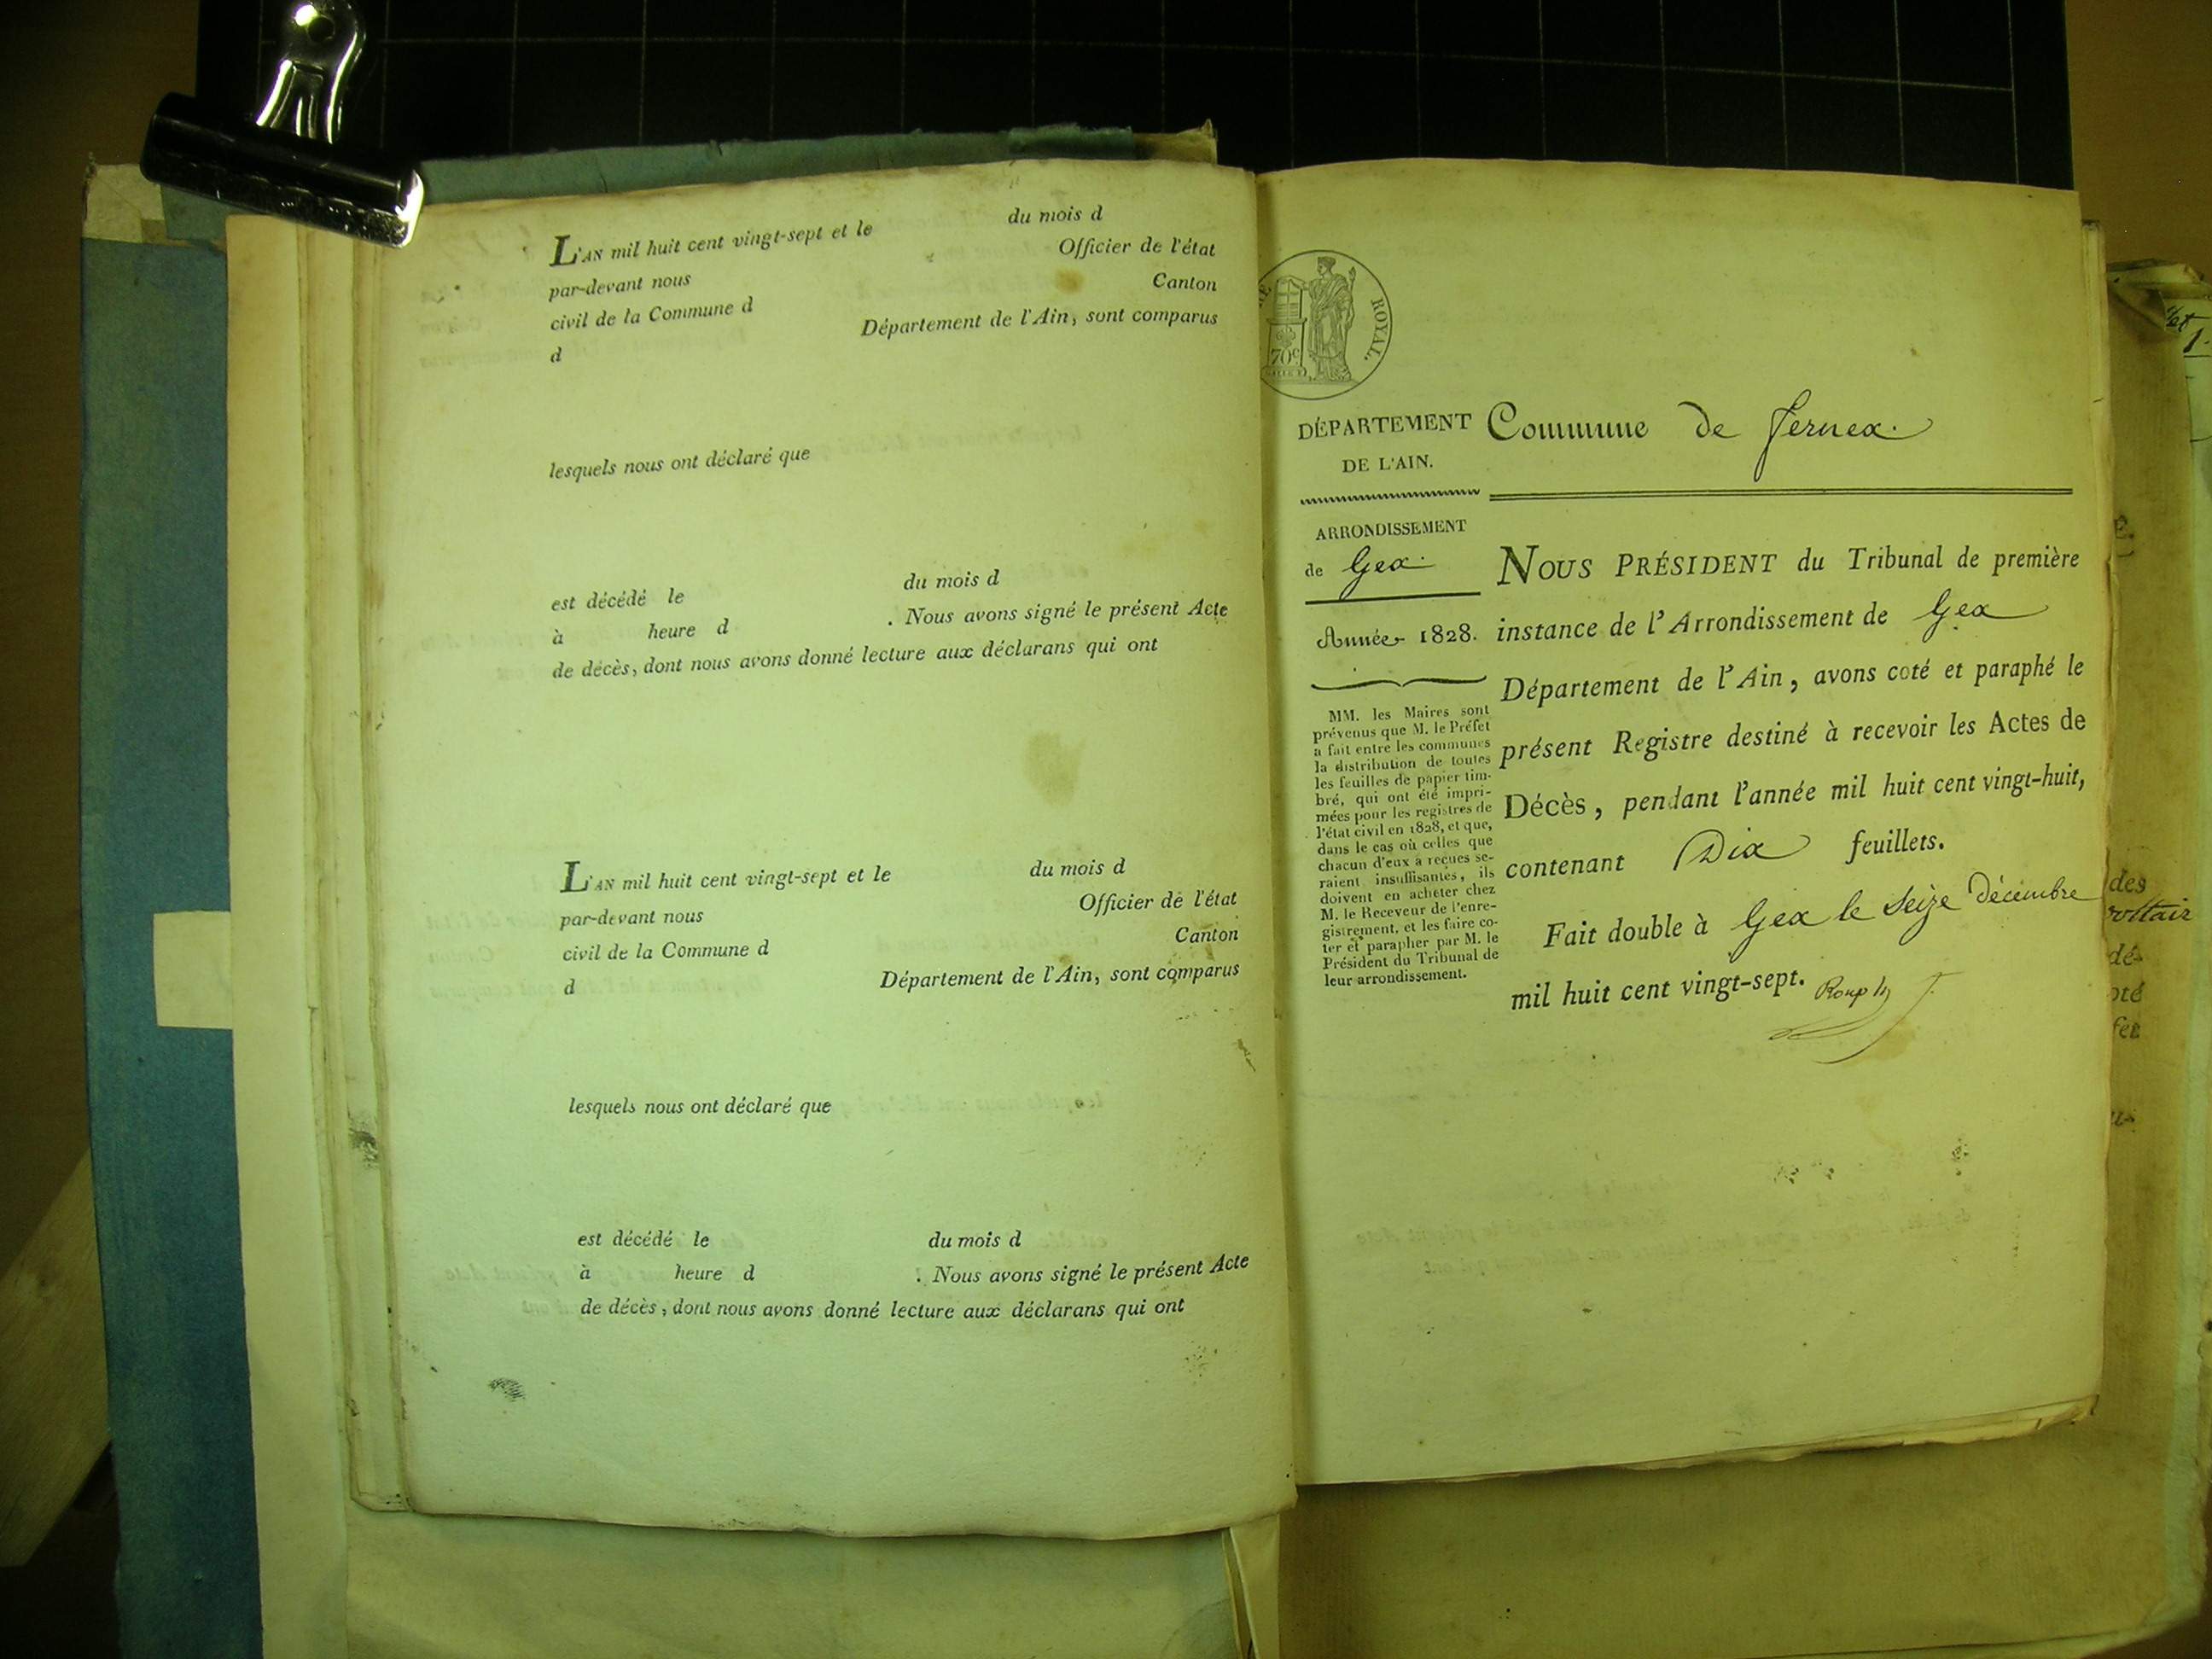 L'AN mil huit cent vingt-sept et le du mois d
par-devant nous Officier de l'état
civil de la Commune d Canton
d Département de l'Ain, sont comparus
lesquels nous ont déclaré que
est décédé le du mois d
à heure d . Nous avons signé le présent Acte
de décès, dont nous avons donné lecture aux déclarans qui ont
L'AN mil huit cent vingt-sept et le du mois d
par-devant nous Officier de l'état
civil de la Commune d Canton
d Département de l'Ain, sont comparus
lesquels nous ont déclaré que
est décédé le du mois d
à heure d . Nous avons signé le présent Acte
de décès, dont nous avons donné lecture aux déclarans qui ont
ROYAL.
70c
DÉPARTEMENT
DE L'AIN.
Commune de Fernex.
ARRONDISSEMENT
de Gex.
Année 1828.
MM. les Maires sont
prévenus que M. le Préfet
a fait entre les communes
la distribution de toutes
les feuilles de papier tim-
bré, qui ont été impri-
mées pour les registres de
l'état civil en 1828, et que,
dans le cas où celles que
chacun d'eux a reçues se-
raient insuffisantes, ils
doivent en acheter chez
M. le Receveur de l'enre-
gistrement, et les faire co-
ter et parapher par M. le
Président du Tribunal de
leur arrondissement.
NOUS PRÉSIDENT du Tribunal de première
instance de l'Arrondissement de Gex
Département de l'Ain, avons coté et paraphé le
présent Registre destiné à recevoir les Actes de
Décès, pendant l'année mil huit cent vingt-huit,
contenant Dix feuillets.
Fait double à Gex le Seize Décembre
mil huit cent vingt-sept.
des
voltair
dé-
oté